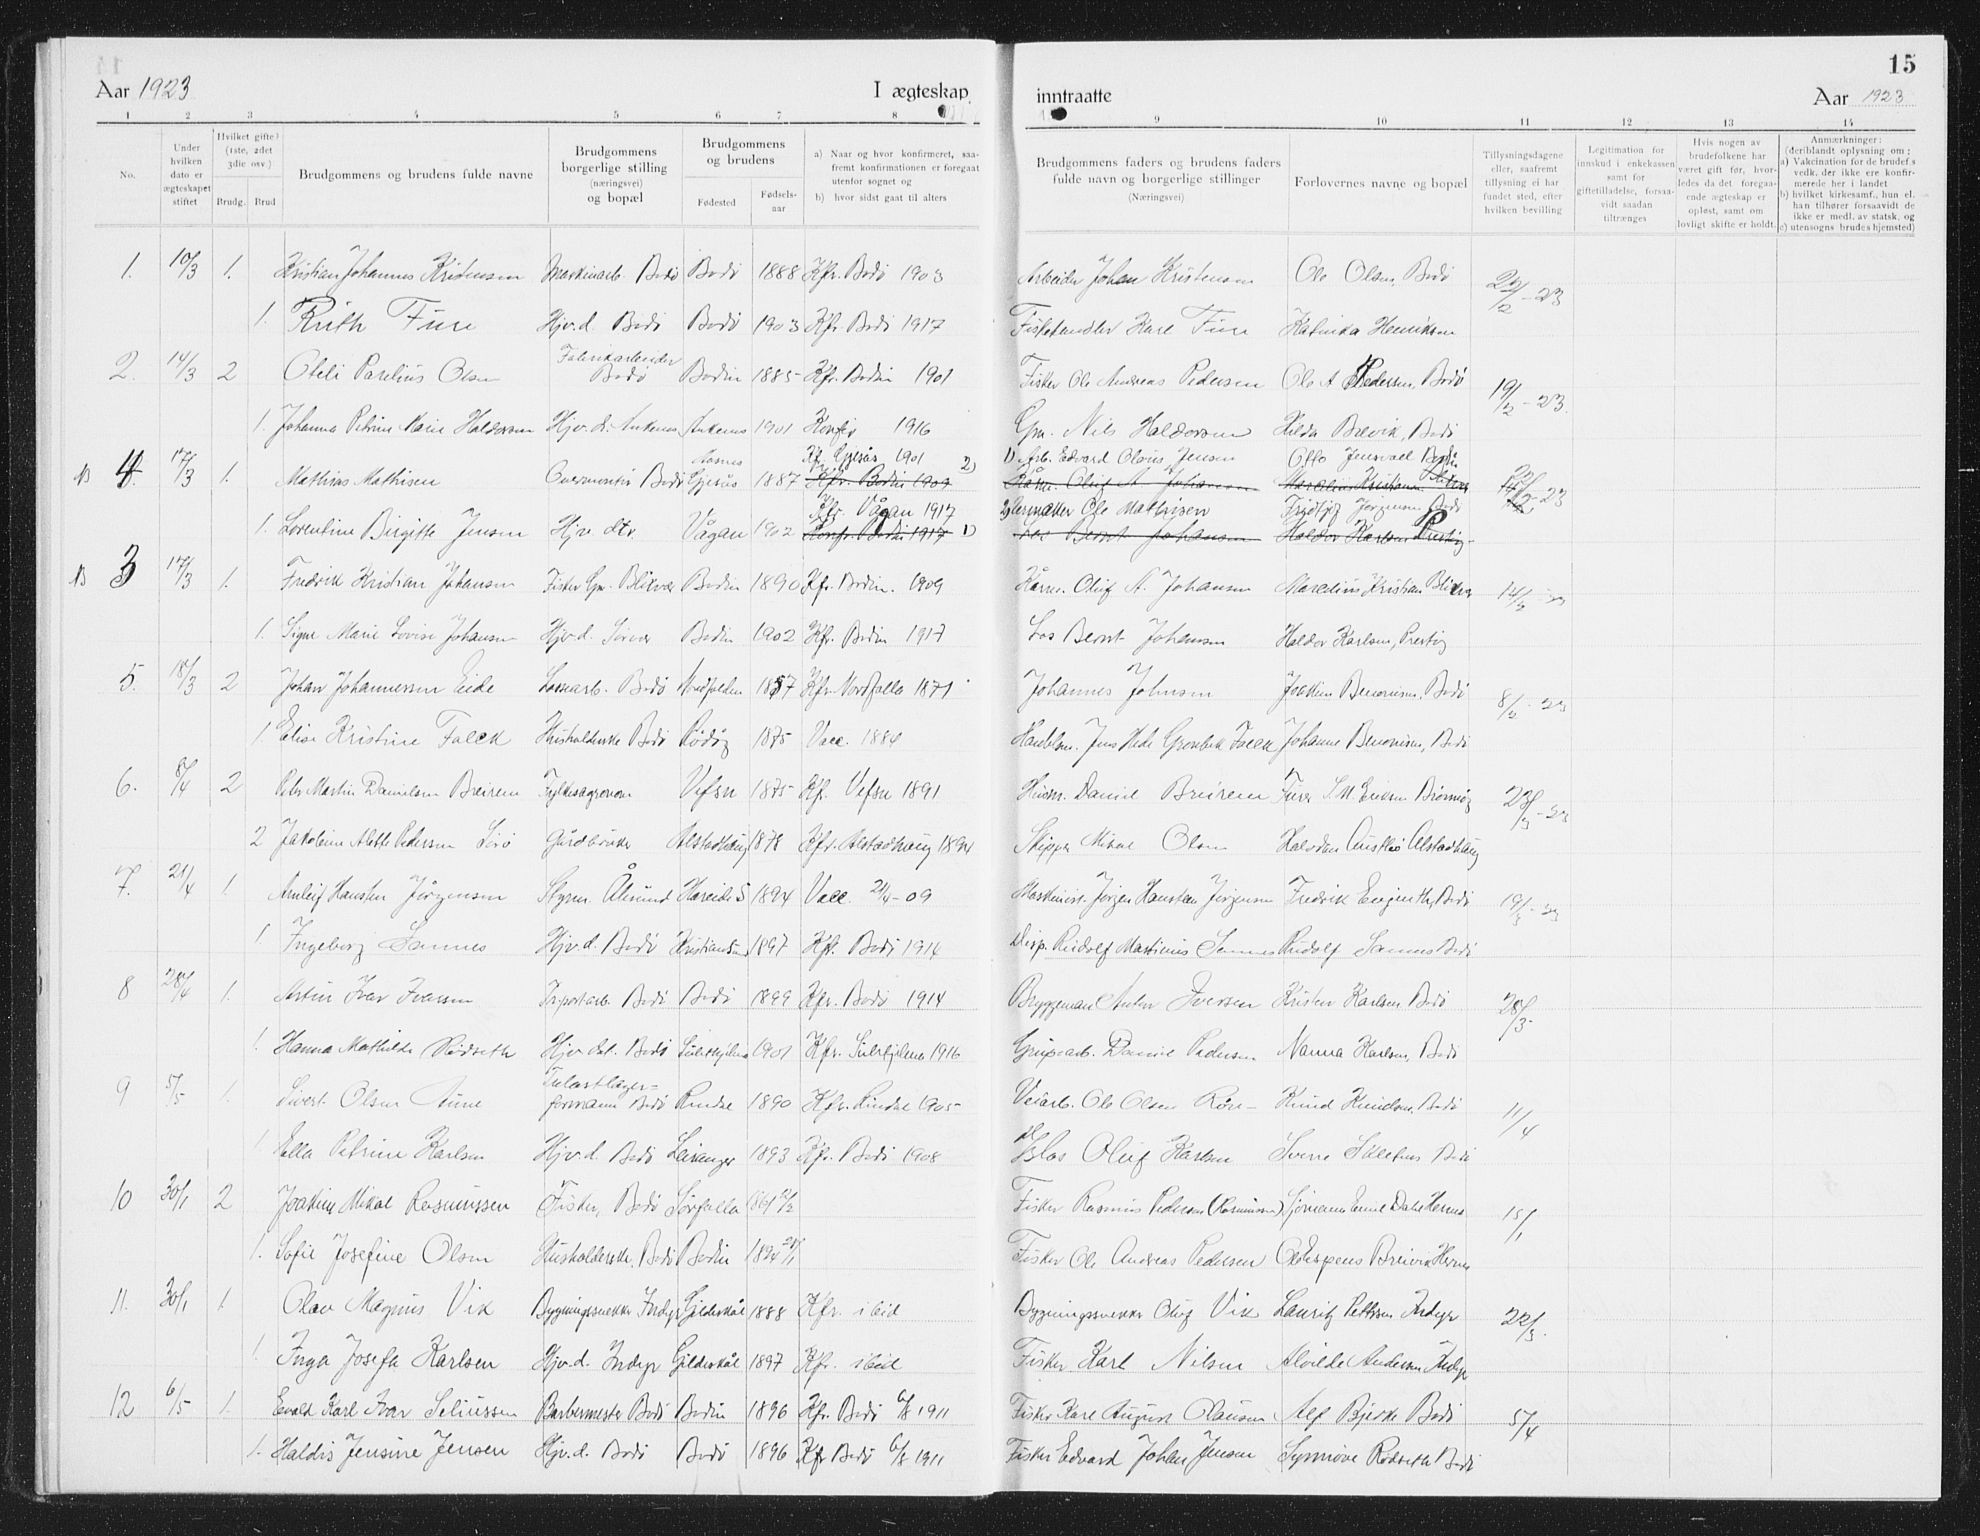 15
Aar 1923 I ægteskap
inntraatte Aar 1923
1 2 3 4 5 6 7 8
9 10 11 12 13 14
No.
Under hvilken dato er ægteskapet stiftet
Hvilket gifte? (1ste, 2det 3die osv.)
Brudg. Brud
Brudgommens og brudens fulde navne
Brudgommens borgerlige stilling (næringsvei) og bopæl
Brudgommens og brudens
Fødested Fødsels-aar
a) Naar og hvor konfirmeret, saafremt konfirmationen er foregaat utenfor sognet og
b) hvor sidst gaat til alters
Brudgommens faders og brudens faders fulde navn og borgerlige stillinger (Næringsvei)
Forlovernes navne og bopæl
Tillysningsdagene eller, saafremt tillysning ei har fundet sted, efter hvilken bevilling
Legitimation for innskud i enkekassen samt for giftetilladelse, forsaavidt saadan tiltrænges
Hvis nogen av brudefolkene har været gift før, hvorledes da det foregaaende ægteskap er opløst, samt om lovligt skifte er holdt.
Anmærkninger: (deriblandt oplysning om; a) Vakcination for de brudef.s vedk. der ikke ere konfirmerede her i landet b) hvilket kirkesamf., hun el. han tilhører forsaavidt de ikke er medl. av statsk. og c) utensogns brudes hjemsted)
1. 10/3 1. Kristian Johannes Kristensen Maskinarb. Bodø Bodø 1888 Kfr. Bodø 1903 Arbeider Johan Kristensen Ole Olsen, Bodø 22/2-23
1. Ruth Fure Hjv.d. Bodø Bodø 1903 Kfr. Bodø 1917 Fiskehandler Karl Fure Katinka Henriksen
2. 14/3 2 Oteli Parelius Olsen Fabrikarbeider Bodø Bodin 1885 Kfr. Bodin 1901 Fisker Ole Andreas Pedersen Ole A Pedersen, Bodø 19/2-23.
1. Johanna Petrine Marie Haldorsen Hjv.d. Ankenes Ankenes 1901 Konfr 1916 Gm. Nils Haldorsen Hilda Breivik, Bodø
NB 4. 17/3 1. Mathias Mathisen Overmontør Bodø Gjesås 1887 Kfr. Gjesås 1901 Kfr. Bodin 1909 2) 1) Arb. Edvard Olaus Jensen Otto Jensvoll Bodø
1. Lorentine Birgitte Jensen Hjv. dtr. Vågan 1902 Kfr. Vågan 1917 Konfr. Bodin 1917 1) 2) Ole Mathisen Fridtjof Jørgensen Bodø
NB 3 17/3 1. Fredrik Kristian Johansen Fisker Gm. Blikvær Bodin 1890 Kfr. Bodin. 1909 Oluf A. Johansen Marelius Kristian Blikvær 14/2
1. Signe Marie Lovise Johansen Hjv.d. Bodin 1902 Kfr. Bodin 1917 Los Bernt Johansen Haldor Karlsen, Prestøy
5. 18/3 2 Johan Johannessen Eide Lossearb. Bodø Nordfolden 1857 Kfr. Nordfolla 1871 Johannes Johnsen Joakim Benonisen, Bodø 8/2-23
1. Elise Kristine Falck Husholderske Bodø Rødøy 1875 Vacc. 1884 Handelsm. Jens Hede Grønbek Falck Johanne Benonisen, Bodø
6. 8/4 2 Peder Martin Danielsen Breirem Fylkesagronom Vefsn 1875 Kfr. Vefsn 1891 Husm. Daniel Breirem 23/3-23
2 Jakobine Alette Pedersen Gårdbruker Alstadhaug 1878 Kfr. Alstadhaug Skipper Mikal Olsen
7. 21/4 1. Arnleif Hanstein Jørgensen Styrm. Ålesund Hareid 1894 Vacc. 21/4-09 Maskinist Jørgen Hanstein Jørgensen 19/3-23
1 Ingeborg Sannes Hjv.d. Bodø Kristiansund 1897 Kfr. Bodø 1914 Disp. Rudolf Martinius Sannes Rudolf Sannes Bodø
8 28/4 1. Ivar Iversen Bodø Bodø 1899 Kfr. Bodø 1914 Bryggeman Anton Iversen Kristen Karlsen, Bodø 28/3
1. Hanna Mathilde Rødseth Hjv. dat. Bodø Sulitjelma 1901 Kfr. Sulitjelma 1916 Grubearb. Daniel Pedersen Nanna Karlsen, Bodø
9 5/5 1. Sivert Olsen Aune formann Bodø Rindal 1890 Kfr. Rindal 1905 Veiarb. Ole Olsen Knud Knudsen, Bodø 11/4
1 Ella Petrine Karlsen Hjv.d. Bodø Leiranger 1893 Kfr. Bodø 1908 Oluf Karlsen Sverre Bodø
10 30/1 2 Joakim Mikal Rasmussen Fisker, Bodø Sørfolla 1861 Fisker Rasmus Pedersen (Rasmussen) Sjømann Emil Dahl Hernes 15/1
1. Sofie Josefine Olsen Husholderske, Bodø Bodin 1894 Fisker Ole Andreas Pedersen Breivik Hernes
11. 30/1 1. Olav Magnus Vik Bygningssnekker Indyr Gildeskål 1888 Kfr. ibid Bygningssnekker Oluf Vik Lauritz Pettersen Indyr 22/3.
1 Inga Josefa Karlsen Hjv.d. Indyr Gildeskål 1897 Kfr. ibid Fisker Karl Nilsen Alvilde Andersen Indyr
12 6/5 1. Evald Karl Ivar Seliussen Barbermester Bodø Bodin 1896 Kfr. Bodø 6/8 1911 Fisker Karl August Clausen Alf Bjerke Bodø 5/4
1. Haldis Jensine Jensen Hjv.d. Bodø Bodø 1896 Kfr Bodø 6/8 1911 Fisker Edvard Johan Jensen Synnøve Rødseth Bodø